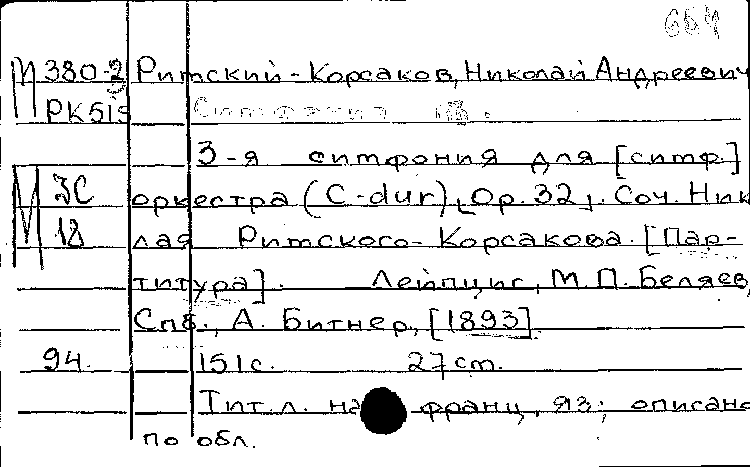 654
М 380-2 Римский-Корсаков, Николай Андреевич
РК515 Симфония №3.
3-я симфония для [симф.]
М 3С оркестра (C-dur), Op. 32, . Соч. Ник
18 лая Римского-Корсакова. [Пар-
титура]. Лейпциг, М.П. Беляев,
Спб., А. Битнер, [1893].
94. 151 с. 27 см.
Тит. л. на франц. яз; описано
по обл.